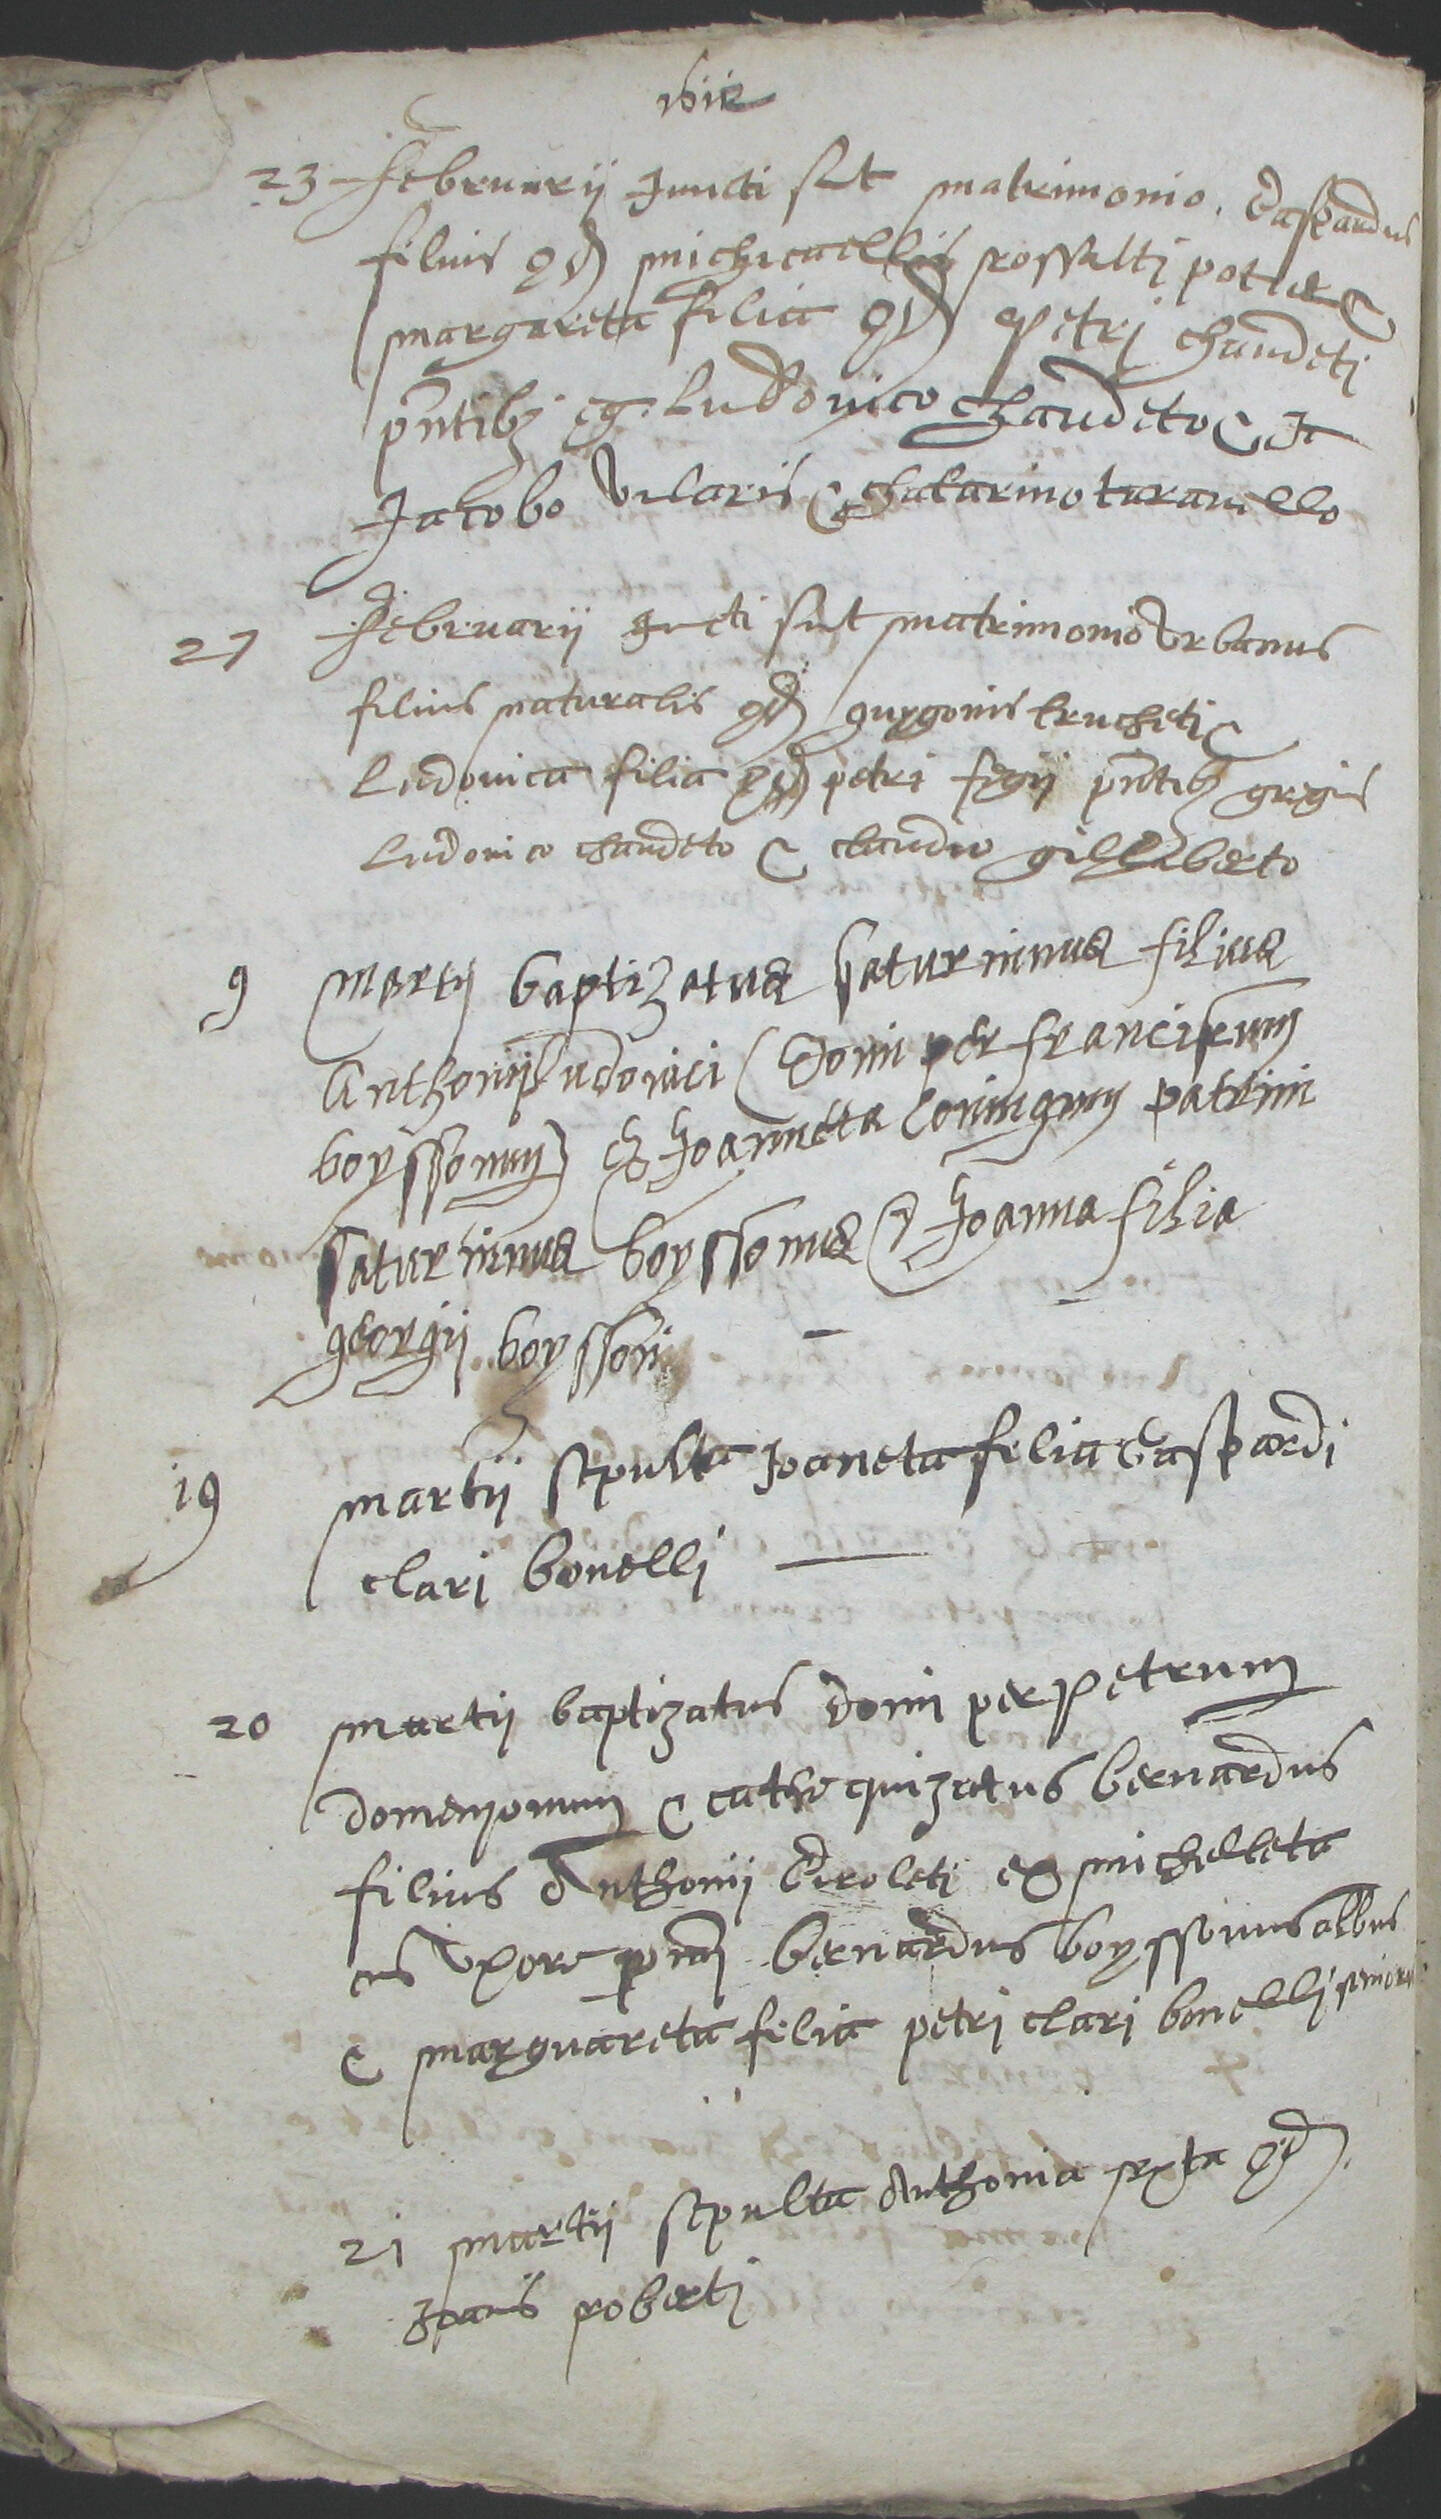 23 februarij Juncti sut matrimonio. Gaspardus
filius qd michicaellis rossulti potier &
margareta filia qd petri chaudeti
pntibz eg. Ludovico chaudeto & 
Jacobo vularis & chatarino taravello
27 februarij Jucti sut matrimonio Urbanus
filius naturalis qd guygonis trucheti &
Ludovica filia qd petri pntibz gregis
Ludovico chaudeto & claudio gilliberto
9 Martij baptizatus saturninus filius
Anthonij Ludovici (Domi per franciscum
boyssonum) & Joannetta Coniugum patrini
saturninus boyssonus & Joanna filia
georgij boyssoni
19 martij sepulta Joaneta filia Gaspardi
clari bonelli
20 martij baptizatus domi per petrum
domenjonum & cathequizatus bernardus
filius Anthonij Droleti ex micheleta
eius uxore pni bernardus boyssonus albus
& marguareta filia petri clari bonelli senioris
21 martij sepulta Anthonia rxta qd.
Joanis roberti